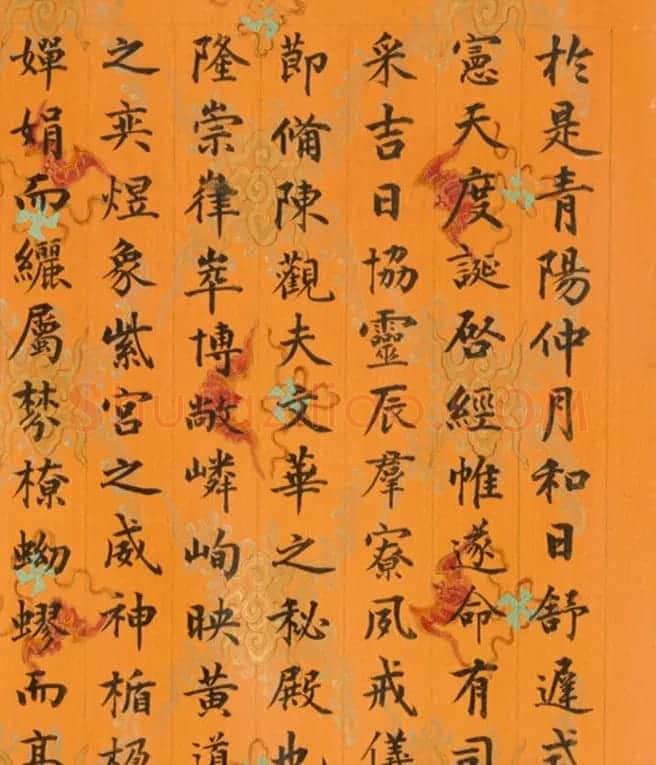 於是青陽仲月和日舒遲式
憲天度誕啓經帷遂命有司
采吉日協靈辰羣寮夙戒儀
節備陳觀夫文華之秘殿也
隆崇嵂崒博敞嶙峋映黃道
之奕煜象紫宮之威神楯
嬋娟而纚屬棼橑蚴蟉而高